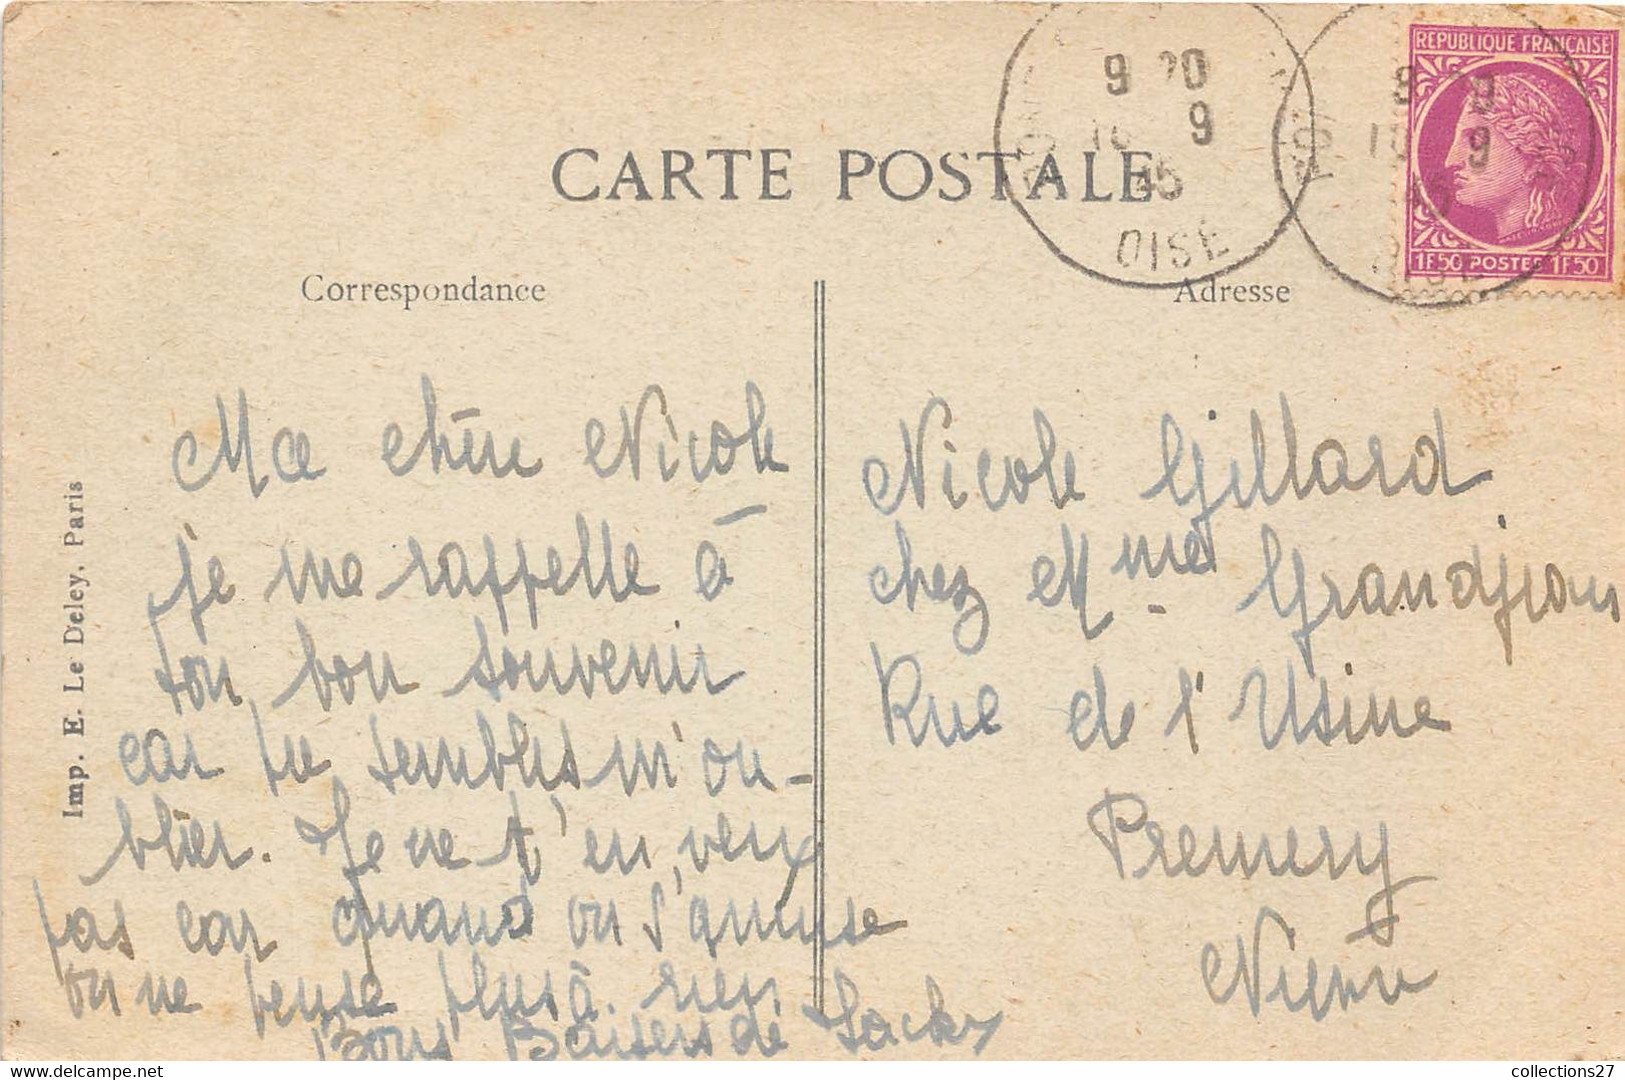 CARTE POSTALE
9 20
9
45
OISE
REPUBLIQUE FRANÇAISE
1F50 POSTES 1F50
Correspondance
Ma chère Nicole
je me rappelle à
ton bon souvenir
car tu sembles m'ou-
blier. Je ne t'en veux
pas car quand on s'amuse
on ne pense plus à rien
Bons Baisers de
Imp. E. Le Deley, Paris
Adresse
Nicole Gillard
chez Mme Grandjean
Rue de l'Usine
Premery
Nièvre
collections27